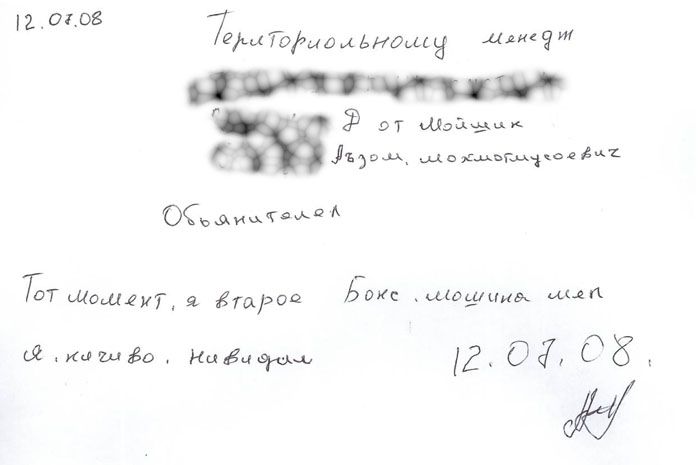 12.07.08
Териториольному менедж
Д от Мойшик
Аъзом, мохмотмусоевич
Обьянителел
Тот момент, я втарое Бокс. мошина меп
Я. ничиво. нивидал 12.07.08.